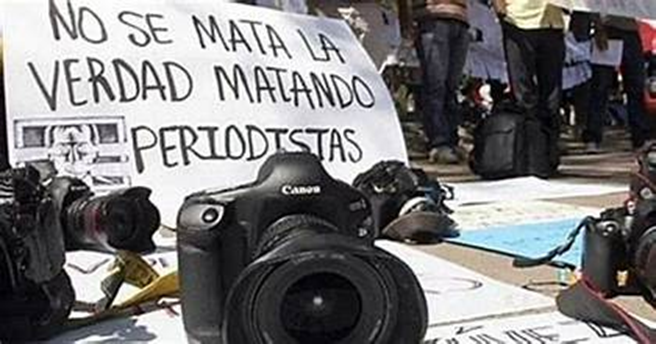 NO SE MATA LA
VERDAD MATANDO
PERIODISTAS
Canon